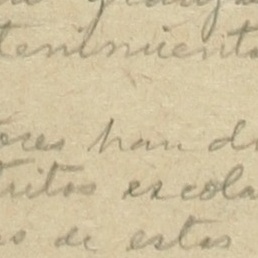 tenimient
ores han d
tritos escola
os de estas